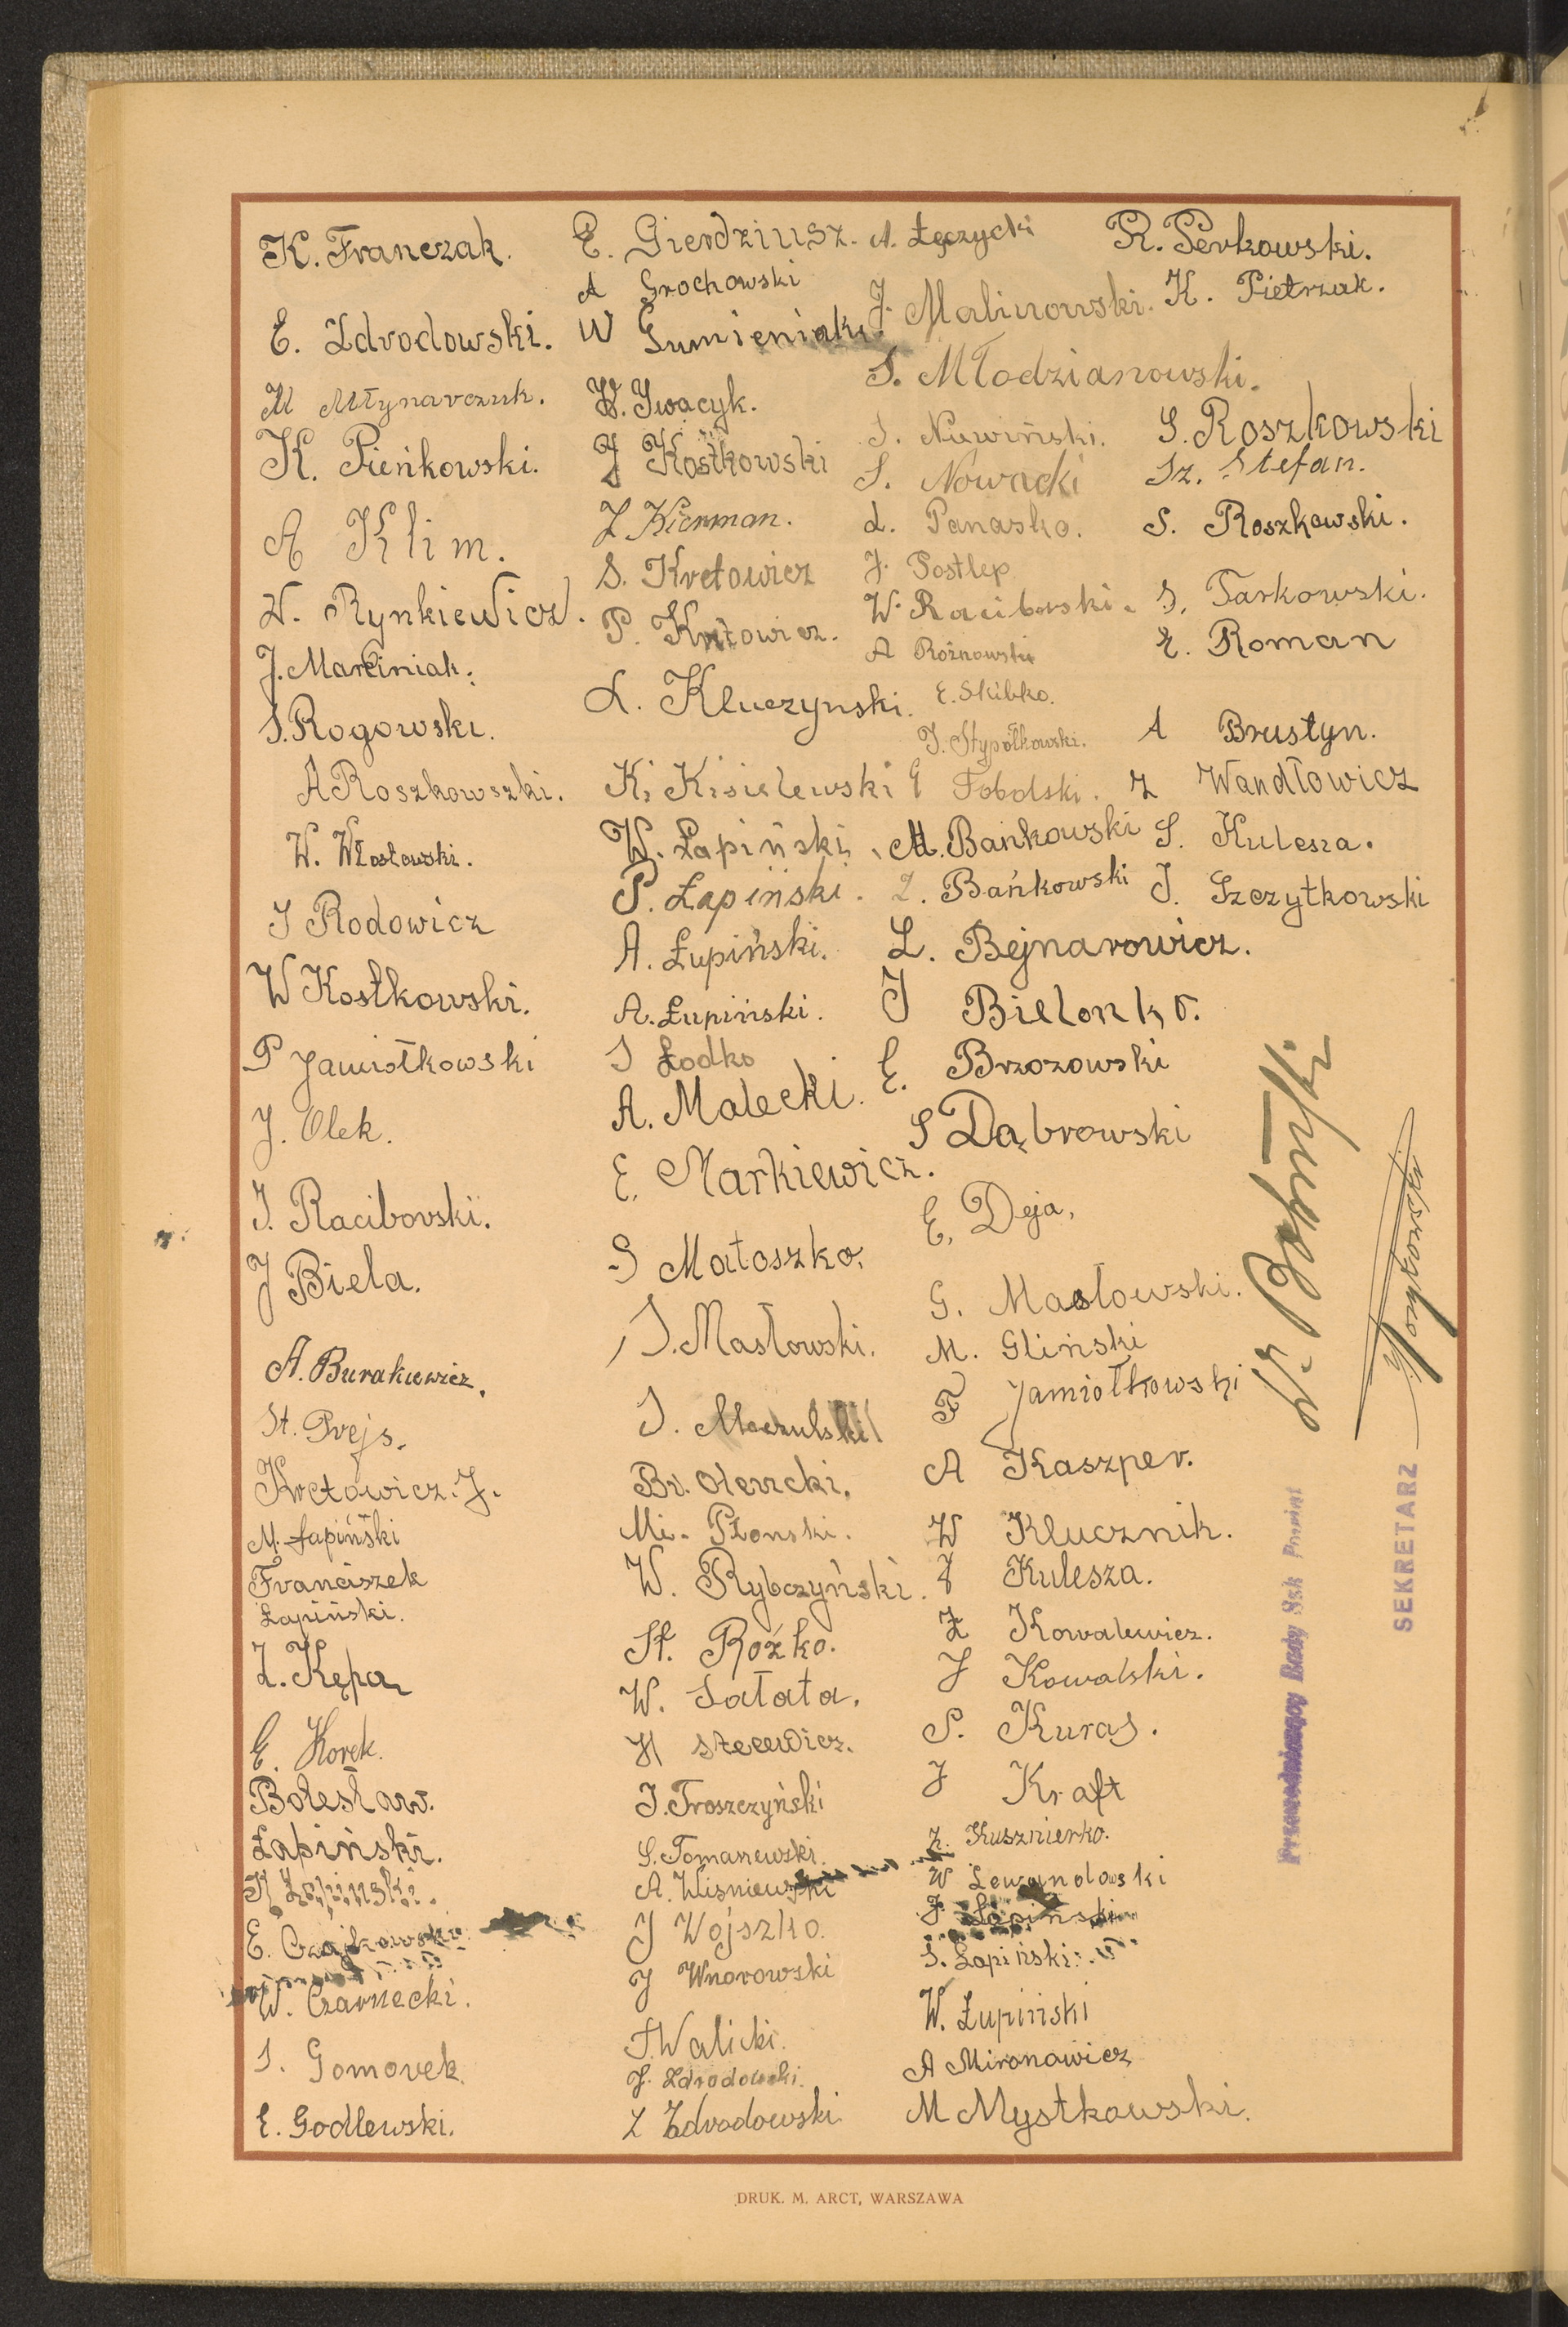 K. Franczak.
E. Zdrodowski.
M Młynarczuk.
K. Pieńkowski.
A Klim.
W. Rynkiewicz.
J. Marciniak.
S. Rogowski.
A Roszkowszki.
W. Włostowski.
J Rodowicz
W Kostkowski.
P Jamiołkowski
J. Olek.
J. Raciborski.
J Biela.
A. Burakiewicz.
St. Prejs.
Kretowicz. J.
M. Łapiński
Franciszek
Łapiński.
Z. Kępa
E. Korek.
Bolesław.
Łapiński.
K Łapiński.
E. Czajkowski
W. Czarnecki.
S. Gomorek.
E. Godlewski.
E. Gierdziusz.
A Grochowski
W Gumieniak
W. Iwacyk.
J Kostkowski
Z Kierman.
S. Kretowicz
P. Kretowicz.
L. Kluczynski.
K. Kisielewski
W. Łapiński
P. Łapiński.
A. Łupiński.
A. Łupiński.
J Łodko
A. Malecki.
E. Markiewicz.
S Matoszko.
J. Masłowski.
J. Moczulski
Br. Olencki.
Mi. Płonski.
W. Rybczyński.
St. Rożko.
W. Sałata.
H
J. Troszczyński
S. Tomaszewski
A. Wiśniewski
J Wojszko.
J Wnorowski
S. Walicki.
J. Zdrodowski.
Z Zdrodowski
A. Łęczycki
J. Malinowski.
S. Młodzianowski.
J. Niewiński.
S. Nowacki
L. Panasko.
J. Postlep
W. Raciborski.
A Rożnowski
E. Skibko.
J. Stypółkowski.
E Tobolski.
M. Bańkowski
Z. Bańkowski
L. Bejnarowicz.
J Bielonko.
E. Brzozowski
S Dąbrowski
E. Deja,
G. Masłowski.
M. Gliński
F Jamiołkowski
A Kaszper.
W Klucznik.
J Kulesza.
Z Kowalewicz.
J Kowalski.
S. Kuraś.
J Kraft
Z. Kusznierko.
W Lewandowski
J Łapiński
S. Łapiński.
W. Łupiński
A Mironowicz
M Mystkowski.
R. Perkowski.
K. Pietrzak.
S. Roszkowski
Sz. Stefan.
S. Roszkowski.
S. Tarkowski.
E. Roman
A Brustyn.
Z Wandłowicz
S. Kulesza.
J. Szczytkowski
Przewodniczący Rady Szk Powiat
SEKRETARZ
DRUK. M. ARCT, WARSZAWA